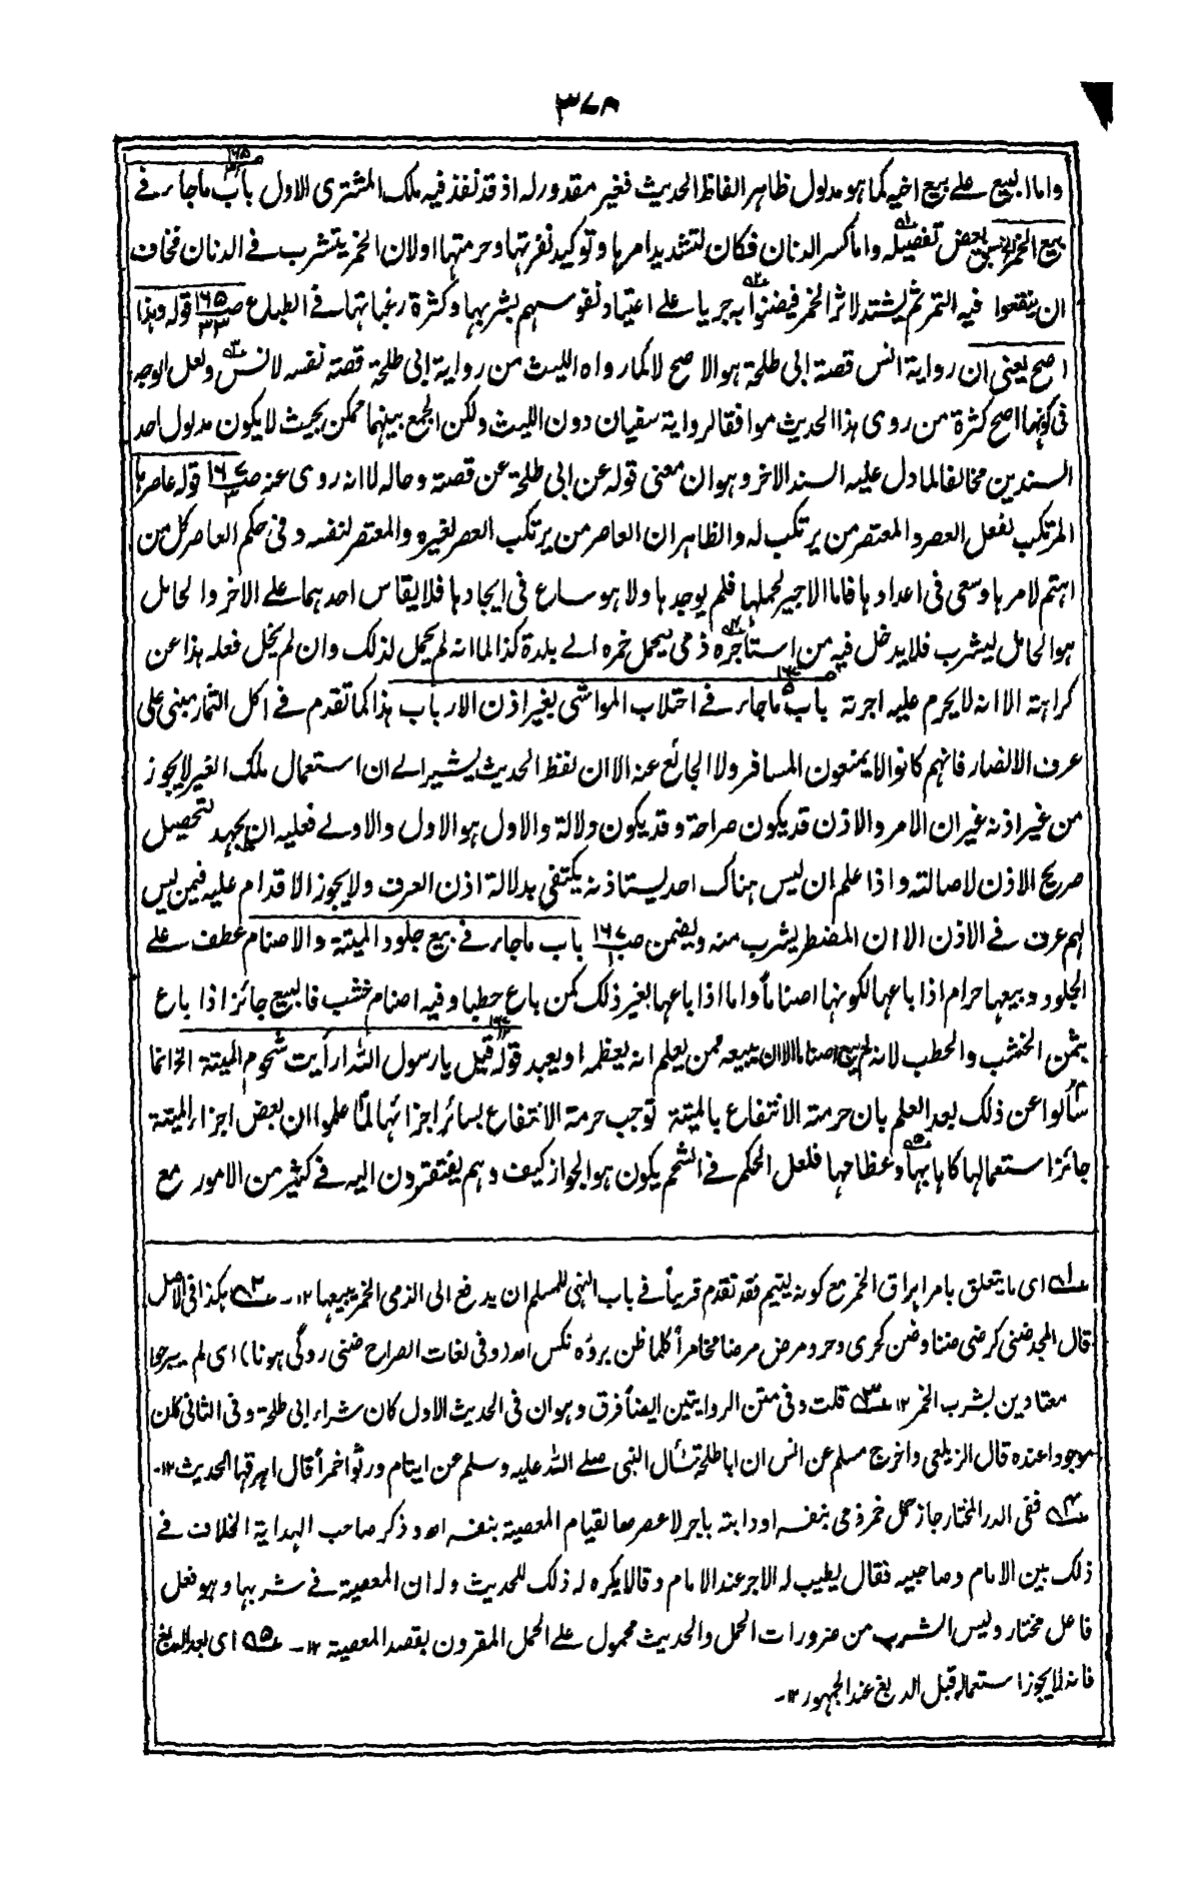 ٣٧٨
واما البيع على بيع اخيه كما هو مدلول ظاهر الفاظ الحديث فغير مقدور له اذ قد نفذ فيه ملك المشترى الاول باب ماجاء فى
بيع الخمر بعض تفصيله واما كسر الدنان فكان لتشديد امرها وتوكيد نفرتها وحرمتها اولان الخمر يتشرب فى الدنان فخاف
ان ينقعوا فيه التمر ثم يشتد لاثر الخمر فيضنوا به جريا على اعتياد نفوسهم بشربها وكثرة رغباتها فى الطباع قوله وهذا
اصح يعنى ان رواية انس قصة ابى طلحة هو الاصح لا كما رواه الليث من رواية ابى طلحة قصة نفسه لانس ولعل الوجه
فى كونها اصح كثرة من روى هذا الحديث موافقا لرواية سفيان دون الليث ولكن الجمع بينهما ممكن بحيث لا يكون مدلول احد
السندين مخالفا لما دل عليه السند الاخر وهو ان معنى قوله عن ابى طلحة عن قصة وحاله لا انه روى عنه قوله عاصرها
المرتكب لفعل العصر والمعتصر من يرتكب له والظاهر ان العاصر من يرتكب العصر لغيره والمعتصر لنفسه وفى حكم العاصر كل من
اهتم لامرها وسعى فى اعدادها فاما الاجير لحملها فلم يوجدها ولا هو ساع فى ايجادها فلا يقاس احدهما على الاخر والحامل
هو الحامل ليشرب فلا يدخل فيه من استأجره ذمى ليحمل خمره الى بلدة كذا لما انه لم يحمل لذلك وان لم يخل فعله هذا عن
كراهة الا انه لا يحرم عليه اجرته باب ماجاء فى احتلاب المواشى بغير اذن الارباب هذا كما تقدم فى اكل الثمار مبنى على
عرف الانصار فانهم كانوا لا يمنعون المسافر ولا الجائع عنه الا ان لفظ الحديث يشير الى ان استعمال ملك الغير لا يجوز
من غير اذنه غير ان الامر والاذن قد يكون صراحة وقد يكون دلالة والاول هو الاول والاولى فعليه ان يجهد لتحصيل
صريح الاذن لاصالته واذا علم ان ليس هناك احد يستاذنه يكتفى بدلالة اذن العرف ولا يجوز الاقدام عليه فيمن ليس
لهم عرف فى الاذن الا ان المضطر يشرب منه ويضمن باب ماجاء فى بيع جلود الميتة والاصنام عطف على
الجلود وبيعها حرام اذا باعها لكونها اصناماً واما اذا باعها بغير ذلك كمن باع حطبا وفيه اصنام خشب فالبيع جائز اذا باع
بثمن الخشب والحطب لانه لم يبع اصناما الا ان يبيعه ممن يعلم انه يعظمه او يعبد قوله قيل يا رسول الله ارأيت شحوم الميتة الخ انما
سألوا عن ذلك بعد العلم بان حرمة الانتفاع بالميتة توجب حرمة الانتفاع بسائر اجزائها لما علموا ان بعض اجزاء الميتة
جائز استعمالها كاهابها وعظامها فلعل الحكم فى الشحم يكون هو الجواز كيف وهم يفتقرون اليه فى كثير من الامور مع
ـه١ اى ما يتعلق بامر اهراق الخمر مع كونه ليتيم فقد تقدم قريباً فى باب النهى للمسلم ان يدفع الى الذمى الخمر يبيعها ١٢ - ـه٢ هكذا فى الاصل
قال المجد ضنى كرضى ضنا وضن كحرى وحر ومرض مرضا مخامراً كلما ظن برؤه نكس اھ (وفى لغات الصراح ضنى روگى ہونا) اى لم يبرحوا
معتادين بشرب الخمر ١٢ ـه٣ قلت وفى متن الروايتين ايضاً فرق وهو ان فى الحديث الاول كان شراء ابى طلحة وفى الثانى كان
موجودا عنده قال الزيلعى واخرج مسلم عن انس ان ابا طلحة سأل النبى صلى الله عليه وسلم عن ايتام ورثوا خمراً قال اهرقها الحديث ١٢ -
ـه٤ ففى الدر المختار جاز حمل خمر ذمى بنفسه او دابته باجر لا عصرها لقيام المعصية بنفسه اھ وذكر صاحب الهداية الخلاف فى
ذلك بين الامام وصاحبيه فقال يطيب له الاجر عند الامام وقالا يكره له ذلك للحديث وله ان المعصية فى شربها وهو فعل
فاعل مختار وليس الشرب من ضرورات الحمل والحديث محمول على الحمل المقرون بقصد المعصية ١٢ - ـه٥ اى بعد الدبغ
فانه لا يجوز استعماله قبل الدبغ عند الجمهور ١٢ -